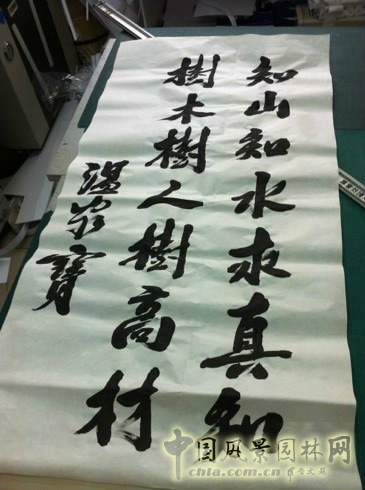 知山知水求真知
樹木樹人樹高材
温家寶
中国风景园林网
chla.com.cn